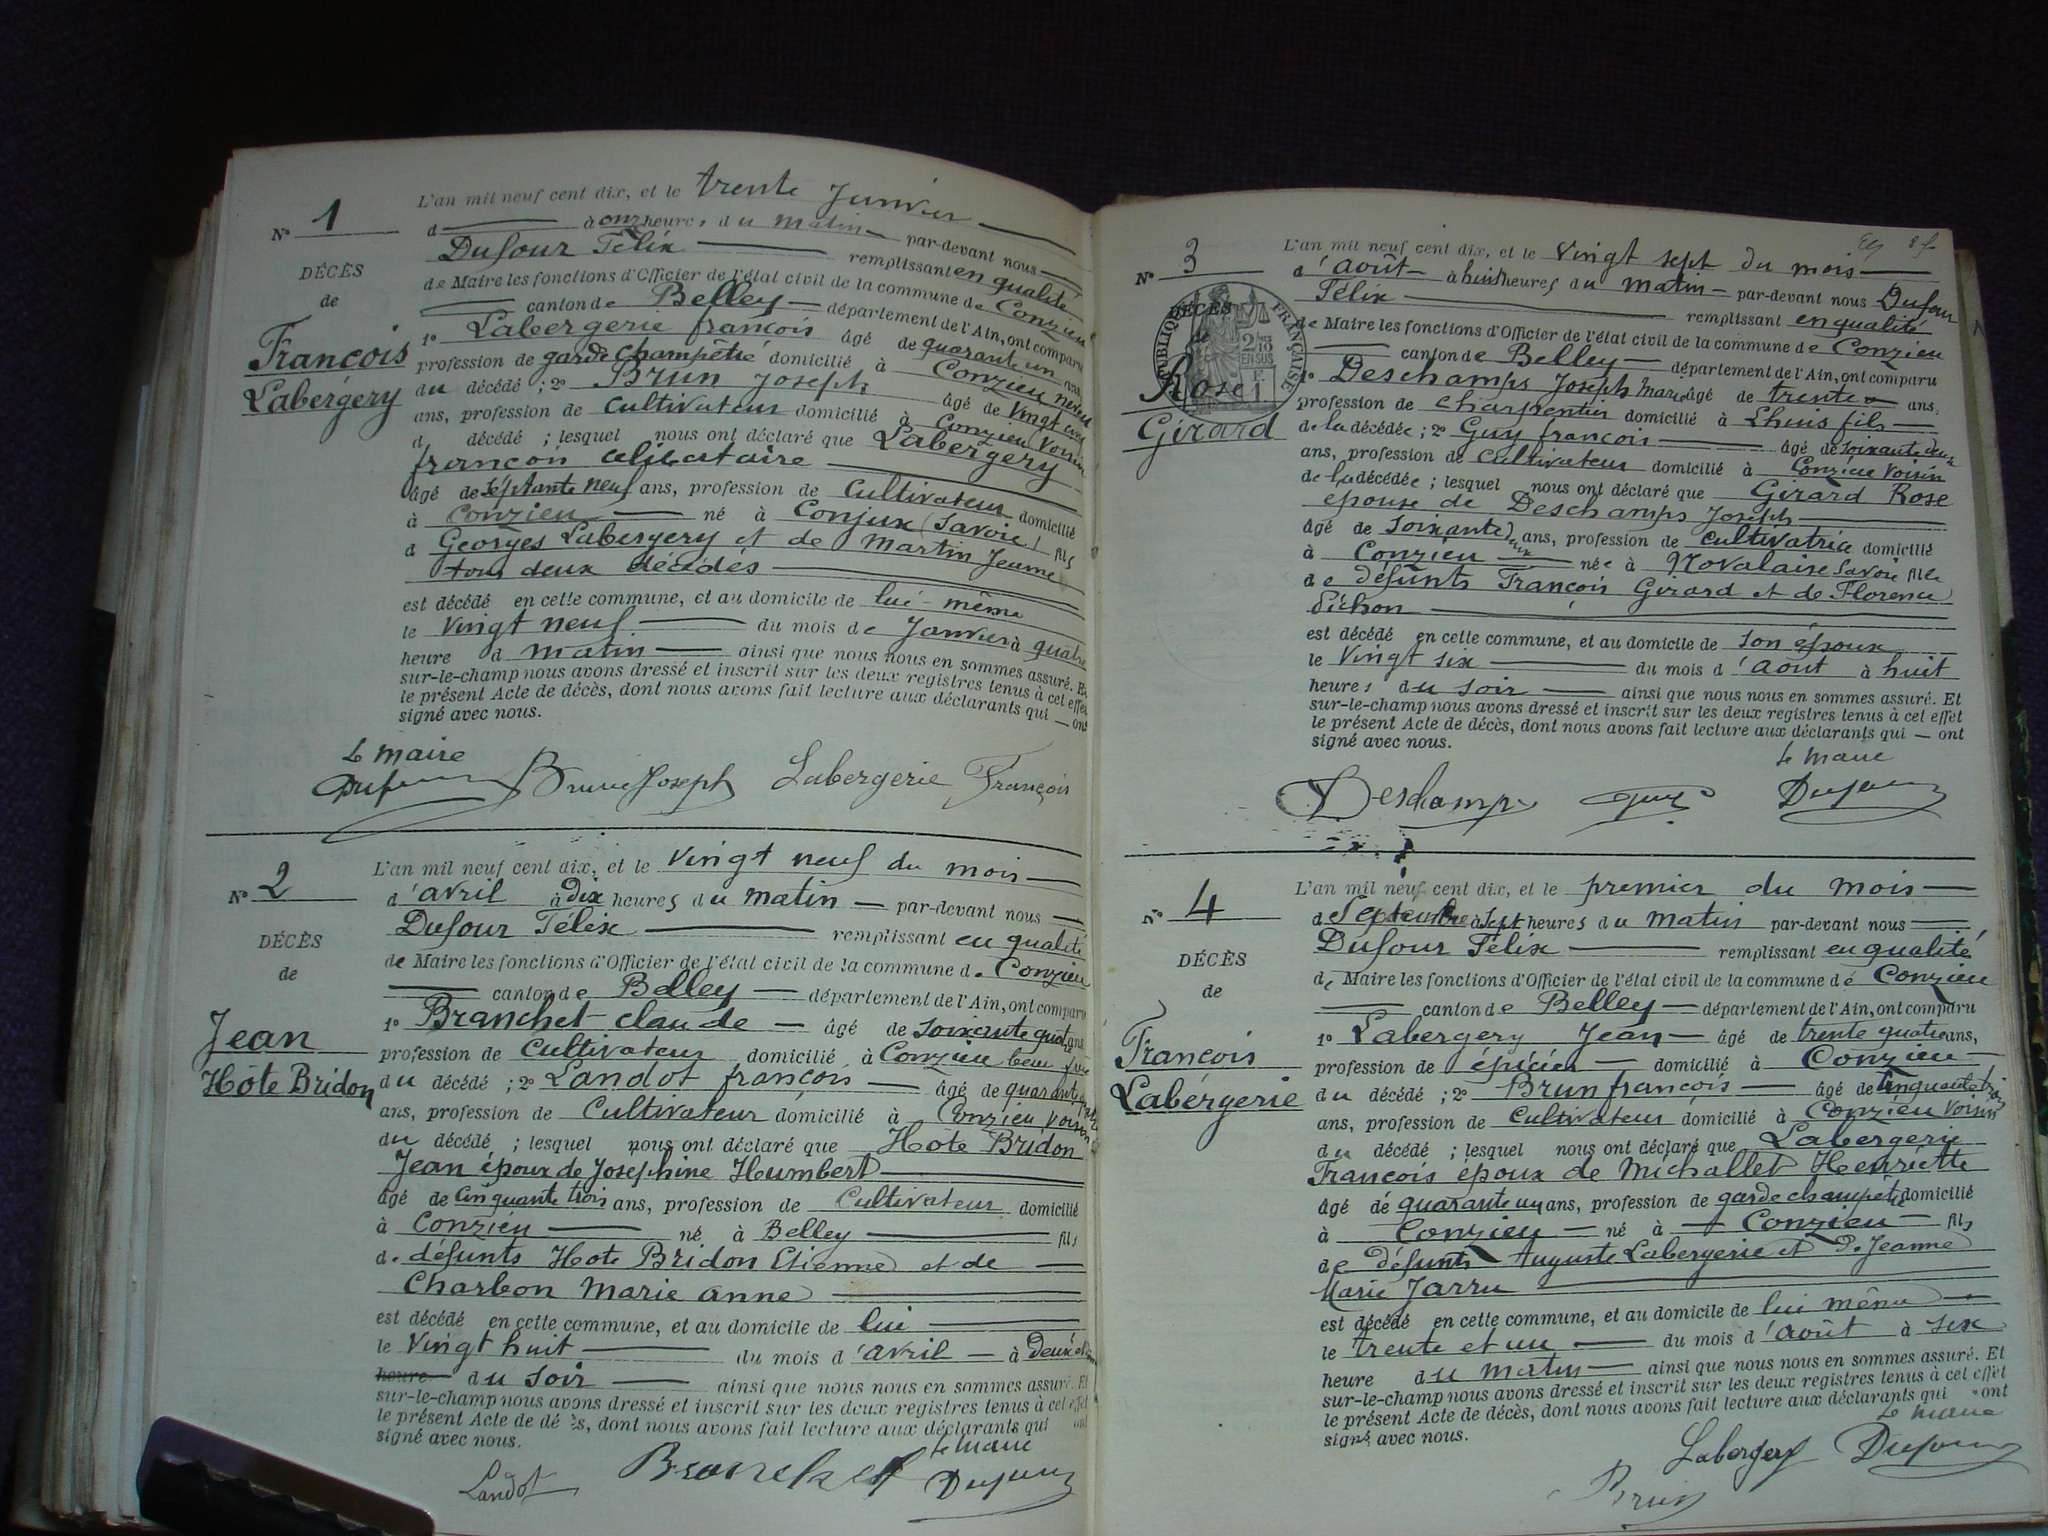 N° 1
DÉCÈS
de
François
Labergery
L'an mil neuf cent dix, et le trente Janvier
à onze heures du matin par-devant nous
Dufour Félix remplissant en qualité
de Maire les fonctions d'Officier de l'état civil de la commune de Conzieu
canton de Belley département de l'Ain, ont comparu
1° Labergerie françois âgé de quarante un ans,
profession de garde champêtre domicilié à Conzieu neveu
du décédé ; 2° Brun Joseph âgé de Vingt cinq
ans, profession de Cultivateur domicilié à Conzieu Voisin
d décédé ; lesquel nous ont déclaré que Labergery
françois célibataire
âgé de septante neuf ans, profession de Cultivateur domicilié
à Conzieu né à Conjux (Savoie) fils
d Georges Labergery et de Martin Jeanne
tous deux décédés
est décédé en cette commune, et au domicile de lui-même
le Vingt neuf du mois de Janvier à quatre
heure d matin ainsi que nous nous en sommes assuré. Et
sur-le-champ nous avons dressé et inscrit sur les deux registres tenus à cet effet
le présent Acte de décès, dont nous avons fait lecture aux déclarants qui — ont
signé avec nous.
Le Maire
Dufour Brun Joseph Labergerie François
N° 2
DÉCÈS
de
Jean
Hôte Bridon
L'an mil neuf cent dix, et le Vingt neuf du mois
d'avril à dix heures du matin par-devant nous
Dufour Félix remplissant en qualité
de Maire les fonctions d'Officier de l'état civil de la commune de Conzieu
canton de Belley département de l'Ain, ont comparu
1° Branchet claude âgé de soixante quatre ans
profession de Cultivateur domicilié à Conzieu beau frère
du décédé ; 2° Landot françois âgé de quarante
ans, profession de Cultivateur domicilié à Conzieu Voisin
du décédé ; lesquel nous ont déclaré que Hôte Bridon
Jean époux de Josephine Humbert
âgé de Cinquante trois ans, profession de Cultivateur domicilié
à Conzieu né à Belley fils
de défunts Hote Bridon Etienne et de
Charbon Marie anne
est décédé en cette commune, et au domicile de lui
le Vingt huit du mois d'avril à deux et demi
heure du soir ainsi que nous nous en sommes assuré. Et
sur-le-champ nous avons dressé et inscrit sur les deux registres tenus à cet effet
le présent Acte de décès, dont nous avons fait lecture aux déclarants qui ont
signé avec nous.
Le Maire
Landot Branchet Dufour
N° 3
DÉCÈS
RÉPUBLIQUE FRANÇAISE
2/10 EN SUS
Rose
Girard
L'an mil neuf cent dix, et le Vingt sept du mois
d'août à huit heures du matin par-devant nous Dufour
Félix remplissant en qualité
de Maire les fonctions d'Officier de l'état civil de la commune de Conzieu
canton de Belley département de l'Ain, ont comparu
1° Deschamps Joseph Marie âgé de trente ans,
profession de Charpentier domicilié à Lhuis fils
de la décédée ; 2° Guy françois âgé de soixante deux
ans, profession de Cultivateur domicilié à Conzieu Voisin
de la décédée ; lesquel nous ont déclaré que Girard Rose
épouse de Deschamps Joseph
âgé de Soixante deux ans, profession de Cultivatrice domicilié
à Conzieu née à Novalaise Savoie fille
de défunts François Girard et de Florence
Pichon
est décédé en cette commune, et au domicile de son époux
le Vingt six du mois d'août à huit
heures du soir ainsi que nous nous en sommes assuré. Et
sur-le-champ nous avons dressé et inscrit sur les deux registres tenus à cet effet
le présent Acte de décès, dont nous avons fait lecture aux déclarants qui — ont
signé avec nous.
Le Maire
Deschamps Guy Dufour
N° 4
DÉCÈS
de
François
Labergerie
L'an mil neuf cent dix, et le premier du mois
d Septembre à Sept heures du matin par-devant nous
Dufour Félix remplissant en qualité
de Maire les fonctions d'Officier de l'état civil de la commune de Conzieu
canton de Belley département de l'Ain, ont comparu
1° Labergery Jean âgé de trente quatre ans,
profession de épicier domicilié à Conzieu
du décédé ; 2° Brun françois âgé de Cinquante trois
ans, profession de Cultivateur domicilié à Conzieu Voisin
du décédé ; lesquel nous ont déclaré que Labergerie
François époux de Michallet Henriette
âgé de quarante un ans, profession de garde champêtre domicilié
à Conzieu né à Conzieu fils
de défunts Auguste Labergerie et d. Jeanne
Marie Jarru
est décédé en cette commune, et au domicile de lui même
le trente et un du mois d'août à six
heure du matin ainsi que nous nous en sommes assuré. Et
sur-le-champ nous avons dressé et inscrit sur les deux registres tenus à cet effet
le présent Acte de décès, dont nous avons fait lecture aux déclarants qui ont
signé avec nous.
Le Maire
Labergery Dufour
Brun